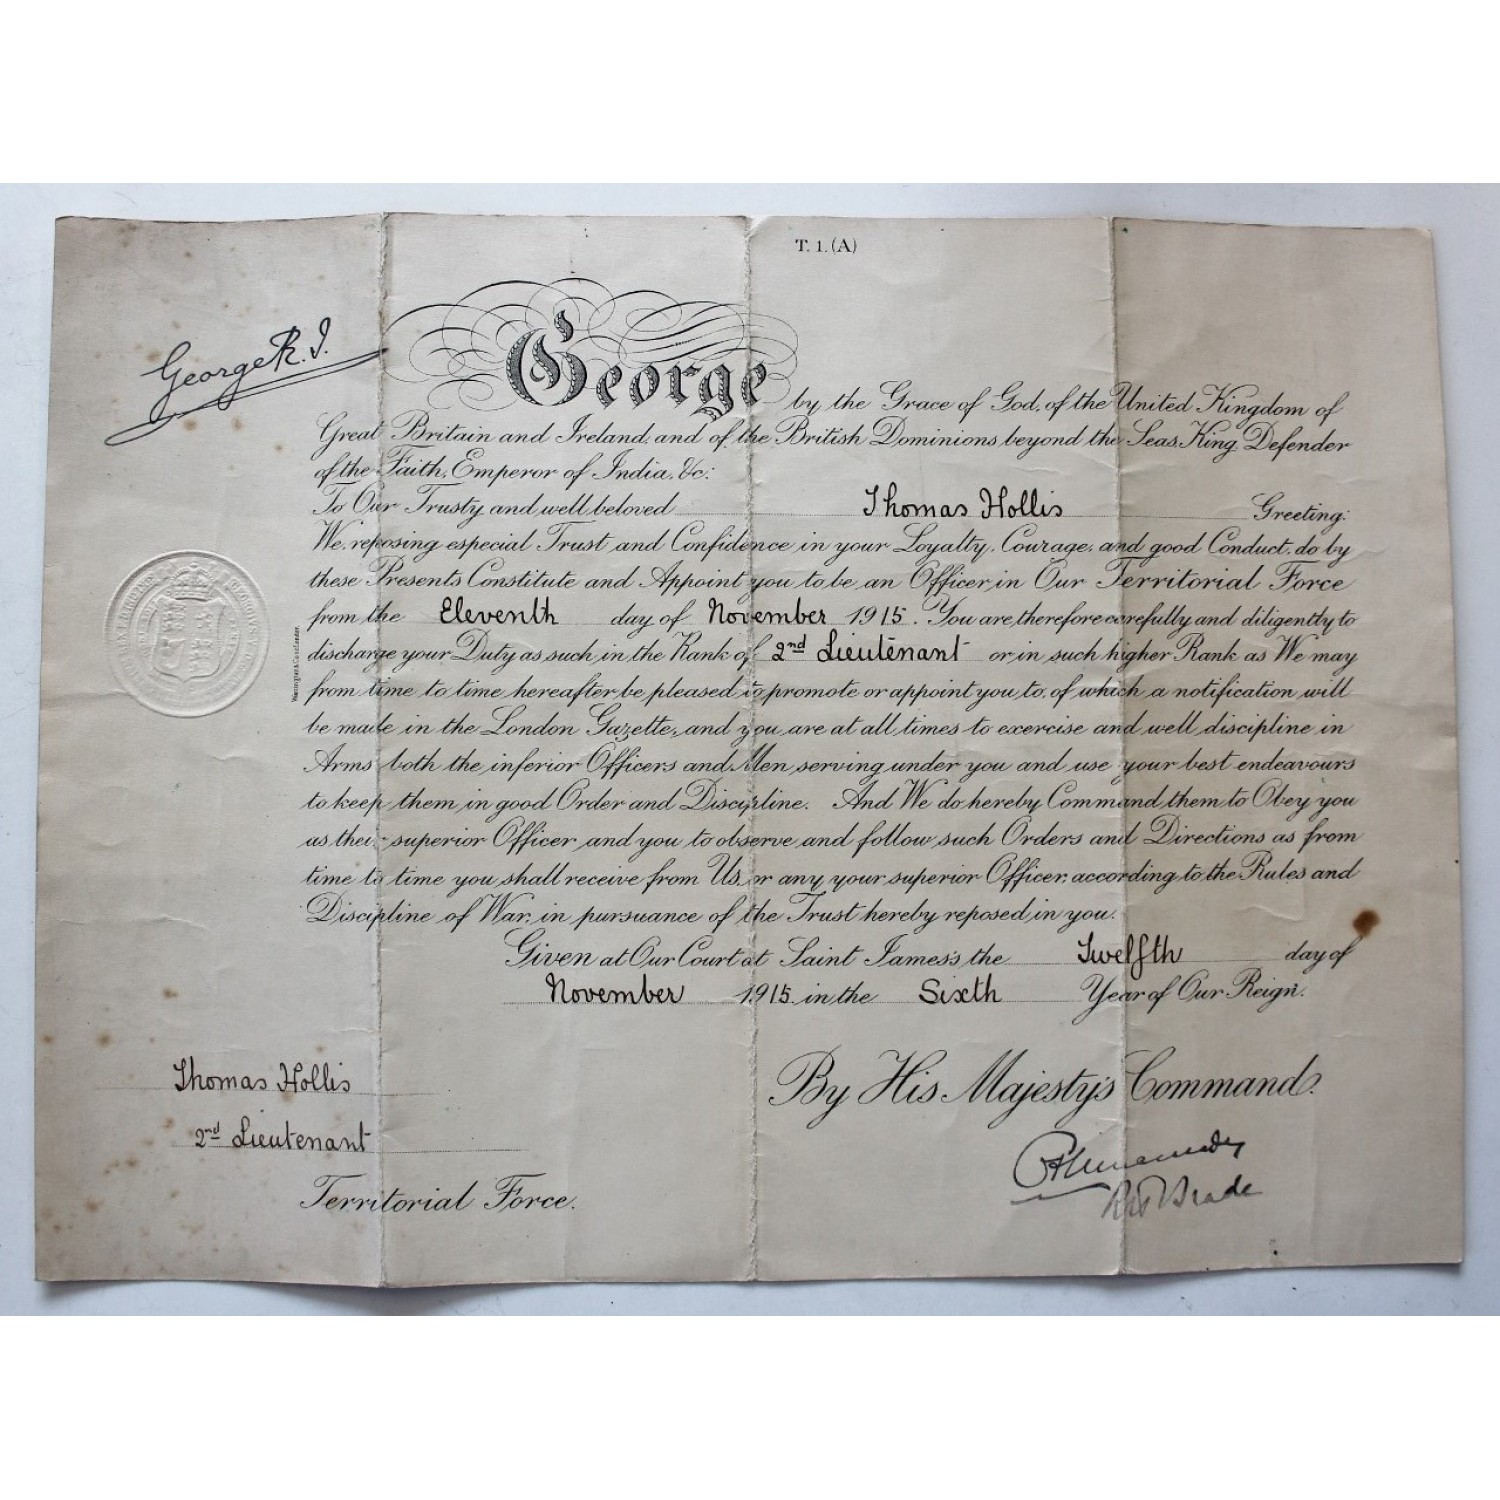 T. 1. (A)
George R. I.
George by the Grace of God, of the United Kingdom of
Great Britain and Ireland, and of the British Dominions beyond the Seas, King, Defender
of the Faith, Emperor of India, &c:
To Our Trusty and well beloved Thomas Hollis Greeting:
We, reposing especial Trust and Confidence in your Loyalty, Courage, and good Conduct, do by
these Presents Constitute and Appoint you to be an Officer in Our Territorial Force
from the Eleventh day of November 1915. You are therefore carefully and diligently to
discharge your Duty as such in the Rank of 2nd Lieutenant or in such higher Rank as We may
from time to time hereafter be pleased to promote or appoint you to, of which a notification will
be made in the London Gazette, and you are at all times to exercise and well discipline in
Arms both the inferior Officers and Men serving under you and use your best endeavours
to keep them in good Order and Discipline. And We do hereby Command them to Obey you
as their superior Officer and you to observe and follow such Orders and Directions as from
time to time you shall receive from Us, or any your superior Officer, according to the Rules and
Discipline of War, in pursuance of the Trust hereby reposed in you.
Given at Our Court at Saint James's the Twelfth day of
November 1915 in the Sixth Year of Our Reign.
By His Majesty's Command.
Thomas Hollis
2nd Lieutenant
Territorial Force.
Brade